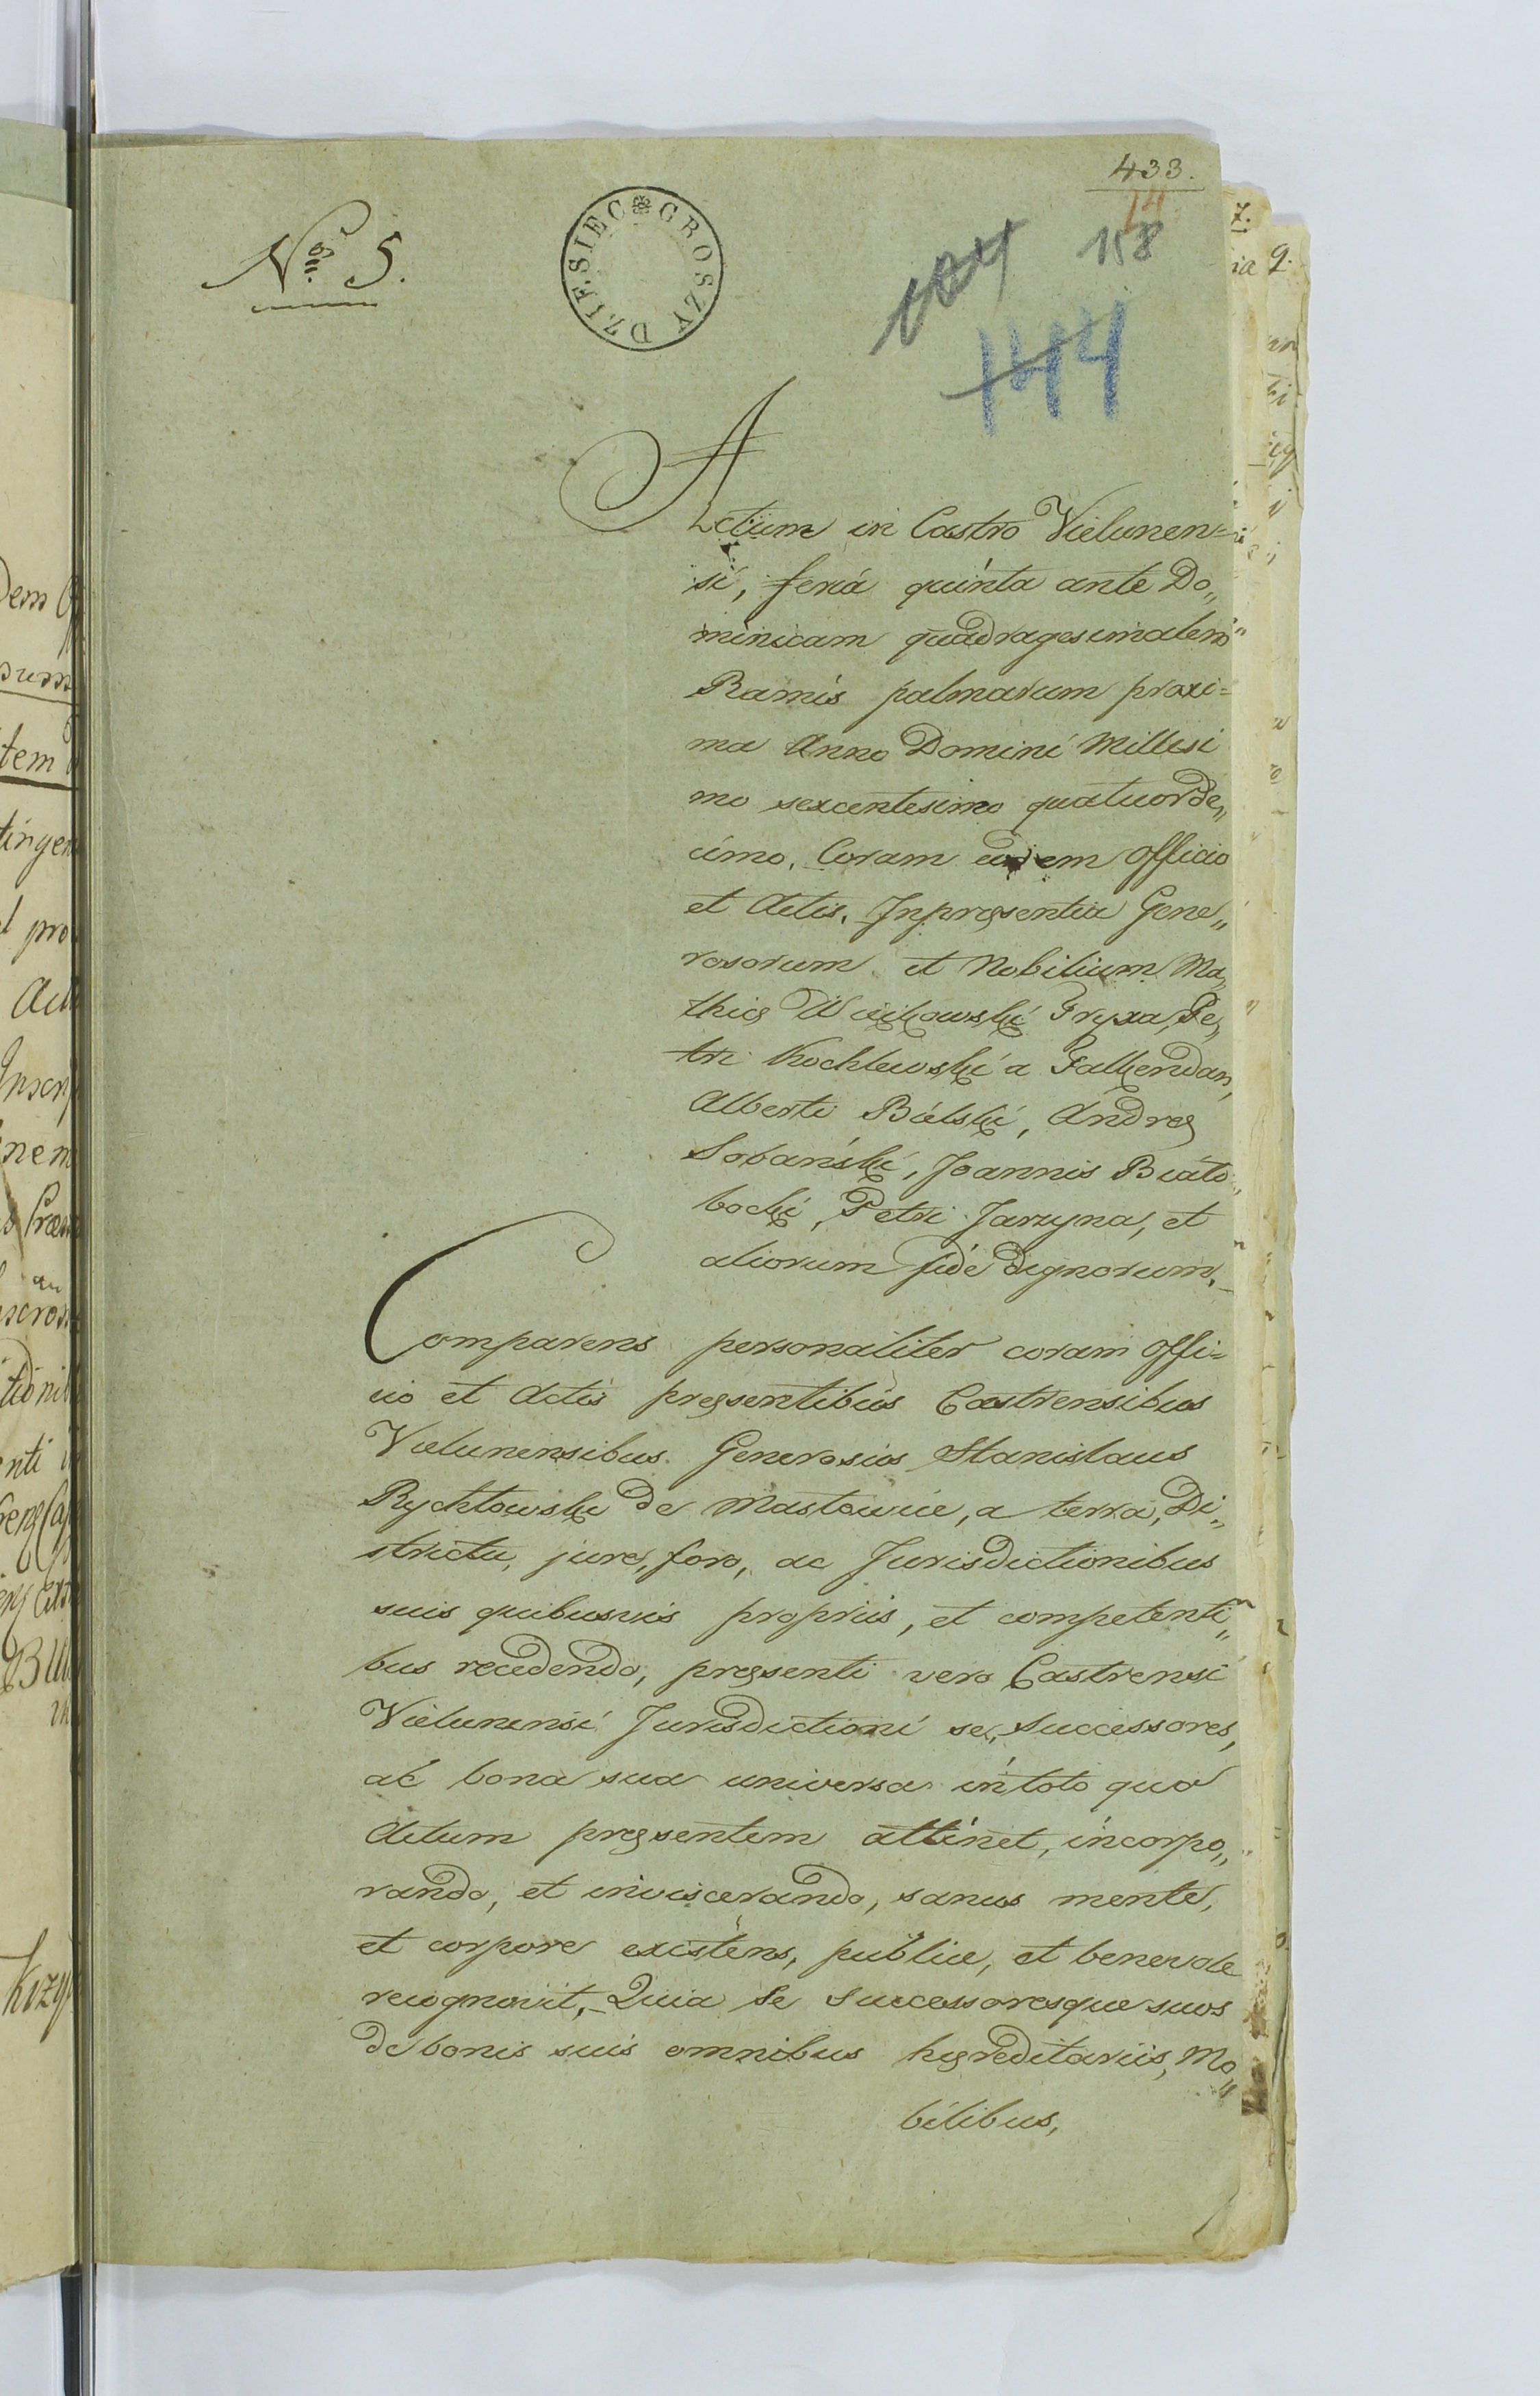 433.
14
158
144
Nro 5.
DZIESIEC GROSZY
Actum in Castro Vielunen=
si, feriá quinta ante Do„
minicam quadragesimalem
Ramis palmarum proxi=
ma Anno Domini Millesi
mo sexcentesimo quatuorde„
cimo. Coram eodem officio
et Actis. Inpręsentia Gene„
rosorum et Nobilium Ma„
thię Wężykowski Fryxa, Pe„
tri Kochlewski a Falkendan,
Alberti Bielski, Andreę
Sobański, Joannis Biało„
bocki, Petri Jarzyna, et
aliorum fide dignorum.
Comparens personaliter coram offi=
cio et Actis pręsentibus Castrensibus
Vielunensibus Generosus Stanislaus
Rychłowski de Masłowice, a terra, Di„
strictu, jure, foro, ac Jurisdictionibus
suis quibusvis propriis, et competenti„
bus recedendo, pręsenti vero Castrensi
Vielunensi Jurisdictioni se, Successores,
ac bona sua universa in toto quo
Actum pręsentem attinet, incorpo„
rando, et inviscerando, sanus mente,
et corpore existens, publice, et benevole
recognovit, Quia Se Successoresque suos
de bonis suis omnibus hęreditariis, Mo„
bilibus,